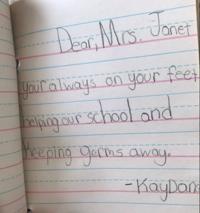 Dear, Mrs. Janet
your always on your feet
helping our school and
keeping germs away.
-KayDan